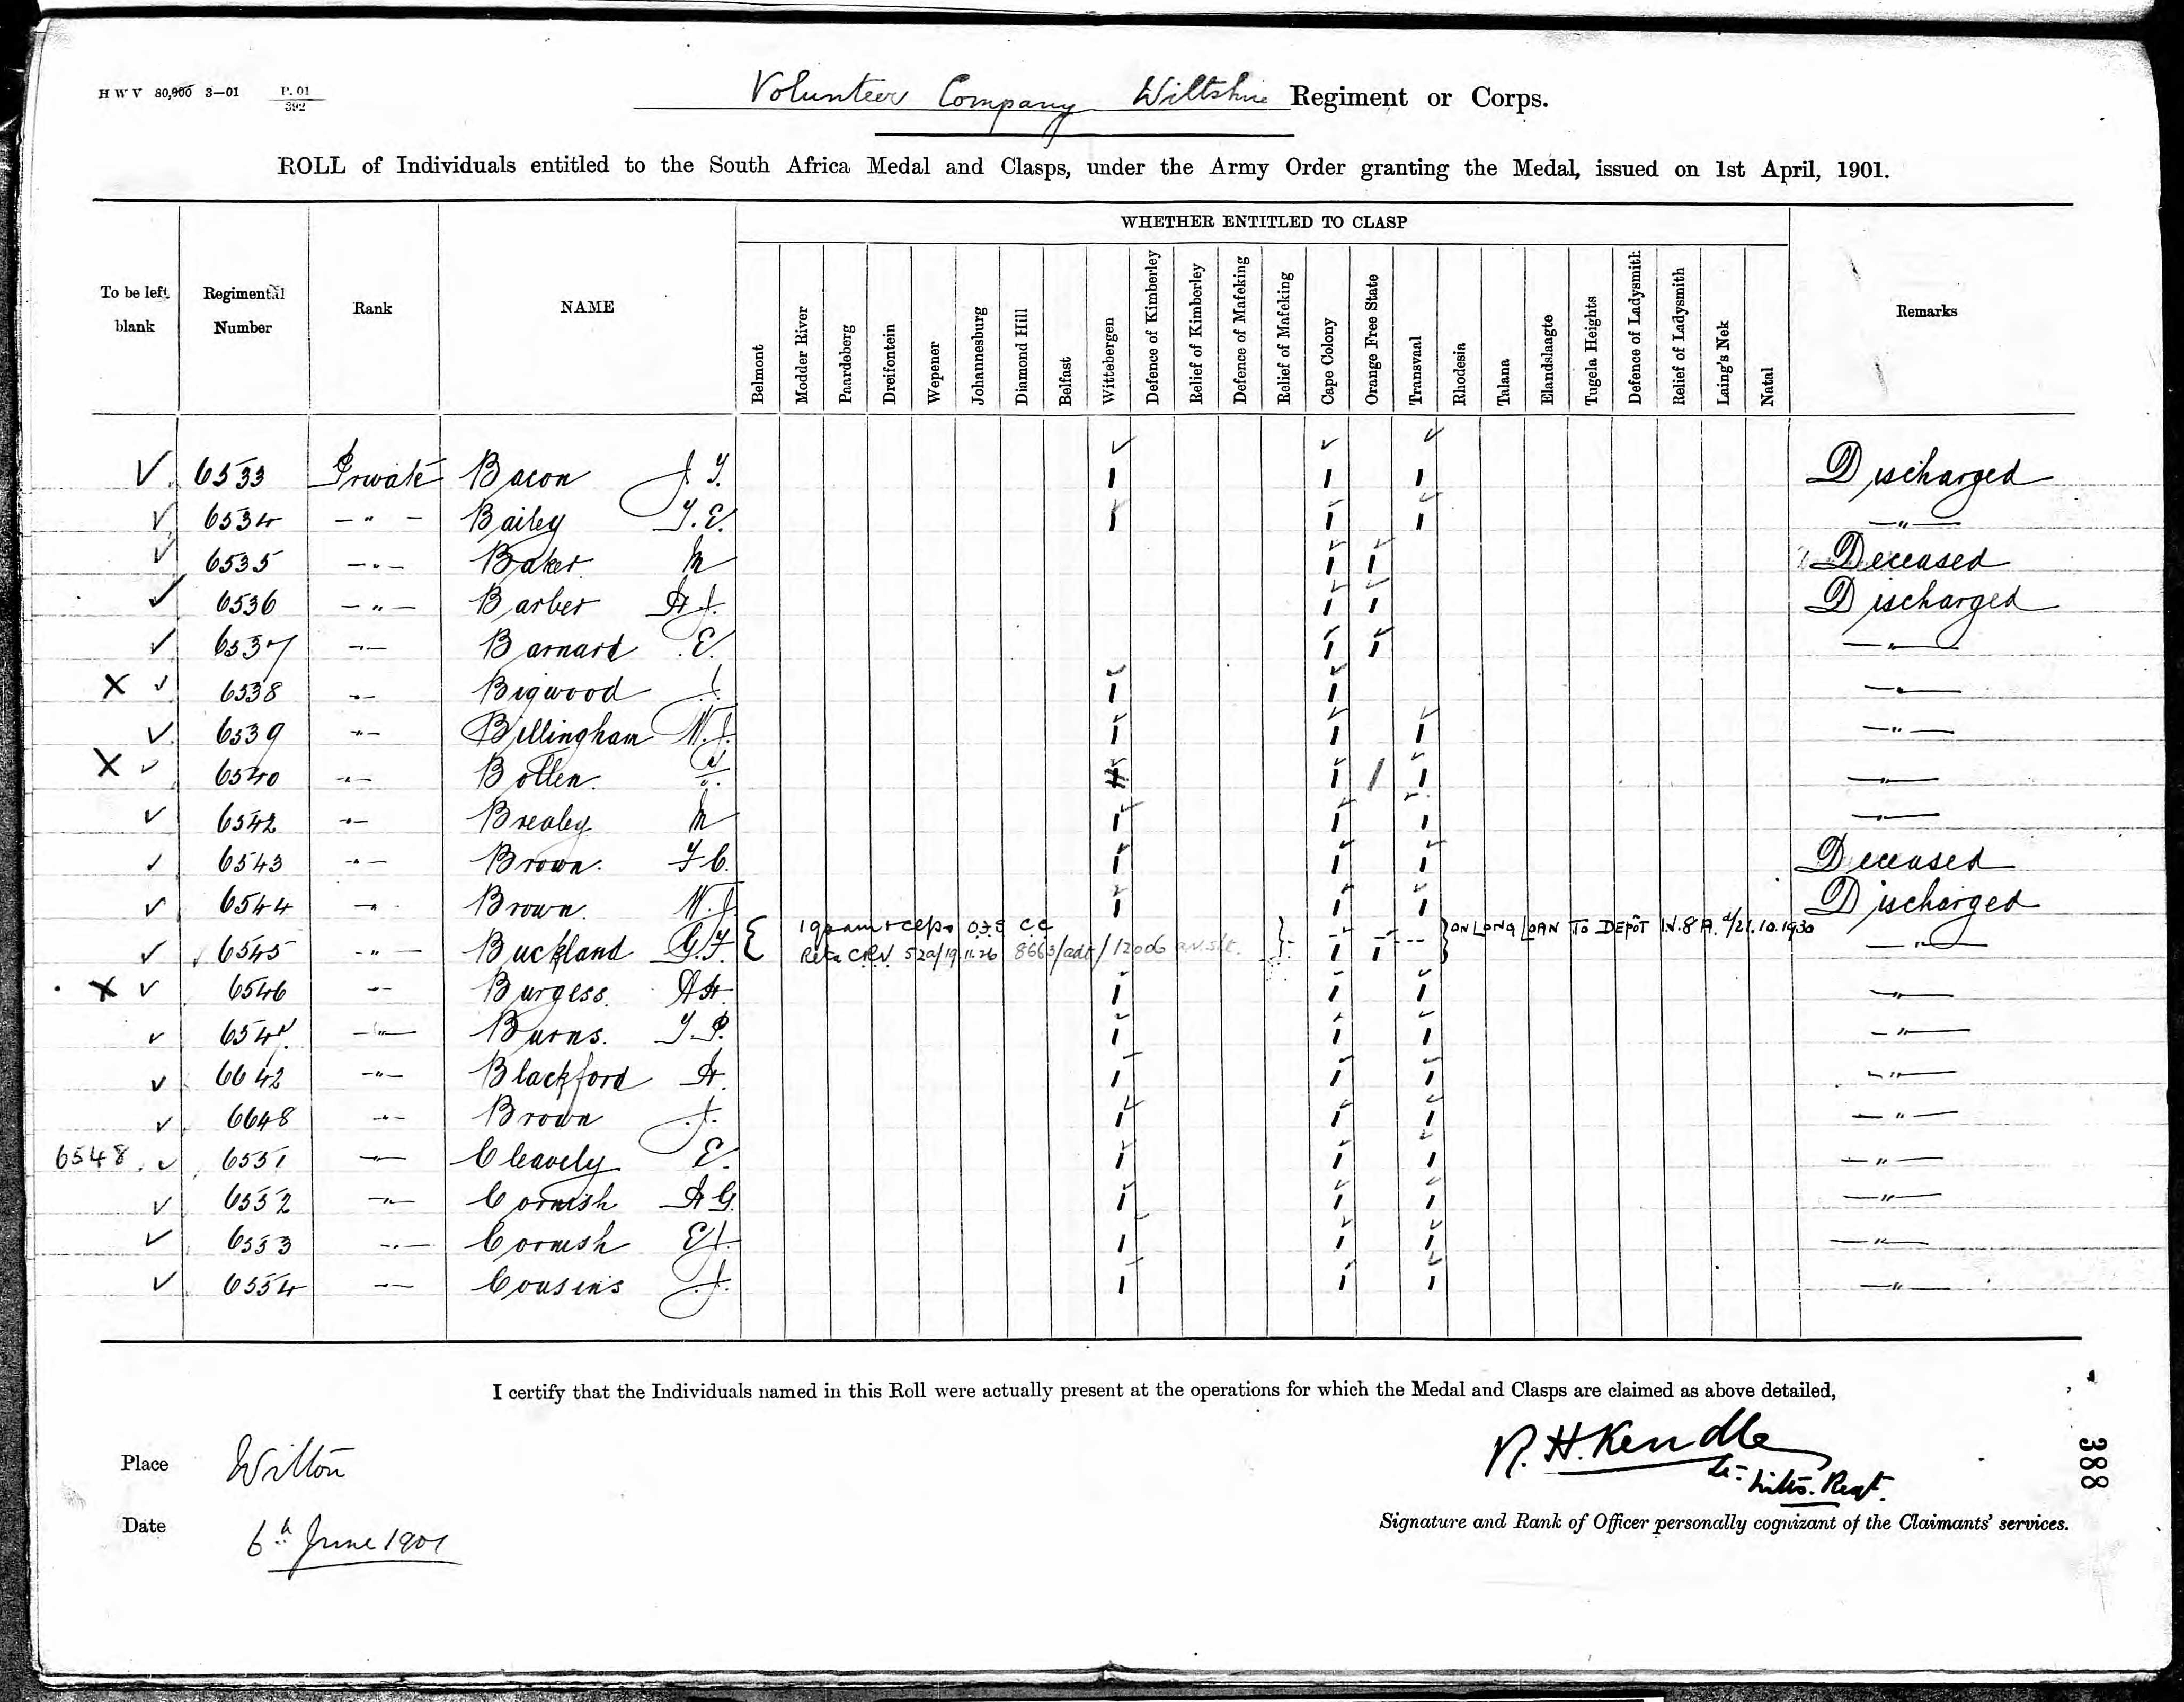 HWV 80,000 3—01 P. 01
392
Volunteer Company Wiltshire Regiment or Corps.
ROLL of Individuals entitled to the South Africa Medal and Clasps, under the Army Order granting the Medal, issued on 1st April, 1901.
WHETHER ENTITLED TO CLASP
To be left blank
Regimental Number
Rank
NAME
Belmont
Modder River
Paardeberg
Dreifontein
Wepener
Johannesburg
Diamond Hill
Belfast
Wittebergen
Defence of Kimberley
Relief of Kimberley
Defence of Mafeking
Relief of Mafeking
Cape Colony
Orange Free State
Transvaal
Rhodesia
Talana
Elandslaagte
Tugela Heights
Defence of Ladysmith
Relief of Ladysmith
Laing's Nek
Natal
Remarks
✓ 6533 Private Bacon J T. 1 1 1 Discharged
✓ 6534 — " — Bailey T. E. 1 1 1 — " —
✓ 6535 — " — Baker 1 1 Deceased
✓ 6536 — " — Barber A J. 1 1 Discharged
✓ 6537 — " — Barnard E. 1 1 — " —
X ✓ 6538 — " — Bigwood J. 1 1 — " —
✓ 6539 — " — Billingham W. J. 1 1 1 — " —
X ✓ 6540 — " — Bollen 1 / 1 — " —
✓ 6542 — " — Brealey 1 1 1 — " —
✓ 6543 — " — Brown. F C. 1 1 1 Deceased
✓ 6544 — " — Brown. W. J. 1 1 1 Discharged
✓ 6545 — " — Buckland G. F. { } 1 1 } — " —
O.F.S C.C
CRV 52a/19.11.26 8663/adt/1206
ON LONG LOAN TO DEPÔT 21.10.1930
X ✓ 6546 — " — Burgess. A H. 1 1 1 — " —
✓ 654 — " — Burns. T P. 1 1 1 — " —
✓ 6642 — " — Blackford A. 1 1 1 — " —
✓ 6648 — " — Brown J. 1 1 1 — " —
6548. ✓ 6551 — " — Cleavely E. 1 1 1 — " —
✓ 6552 — " — Cornish A G. 1 1 1 — " —
✓ 6553 — " — Cornish E J. 1 1 1 — " —
✓ 6554 — " — Cousens J. 1 1 1 — " —
I certify that the Individuals named in this Roll were actually present at the operations for which the Medal and Clasps are claimed as above detailed,
Place Wilton
R. H. Kendle
Lt- Wilts. Regt.
388
Date 6th June 1901
Signature and Rank of Officer personally cognizant of the Claimants' services.